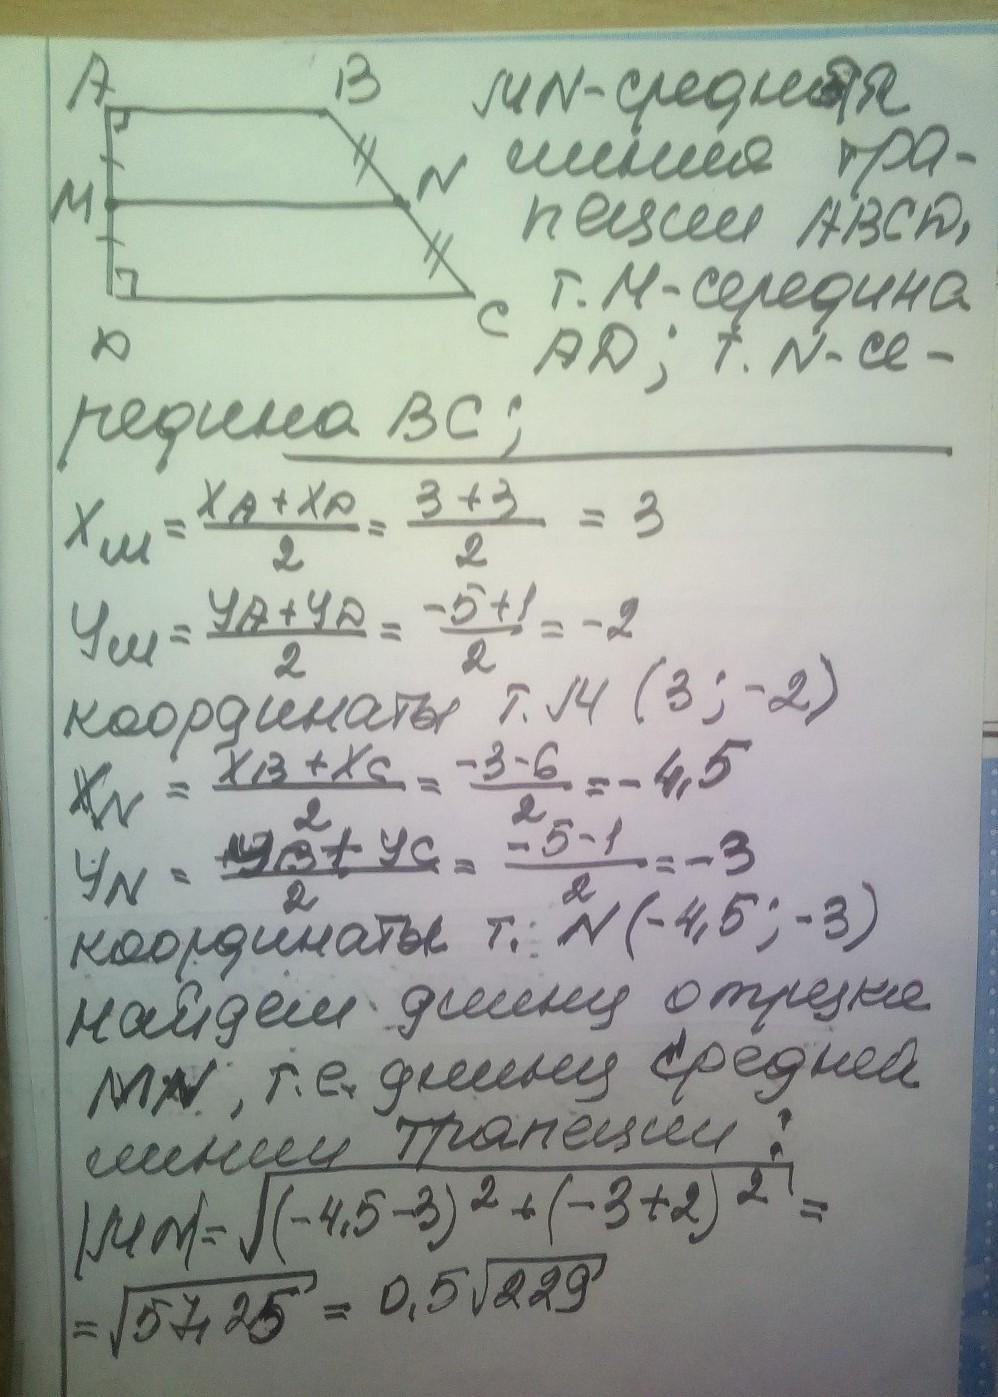 A B MN-средняя
M N линия тра-
пеции ABCD,
D C т. M-середина
AD; т. N-се-
редина BC;
Xм = (XA + XD)/2 = (3+3)/2 = 3
Yм = (YA + YD)/2 = (-5+1)/2 = -2
координаты т. M (3; -2)
XN = (XB + XC)/2 = (-3-6)/2 = -4,5
YN = (YB + YC)/2 = (-5-1)/2 = -3
координаты т. N (-4,5; -3)
найдем длину отрезка
MN, т.е. длину средней
линии трапеции:
|MN| = √((-4,5-3)² + (-3+2)²) =
= √57,25 = 0,5√229